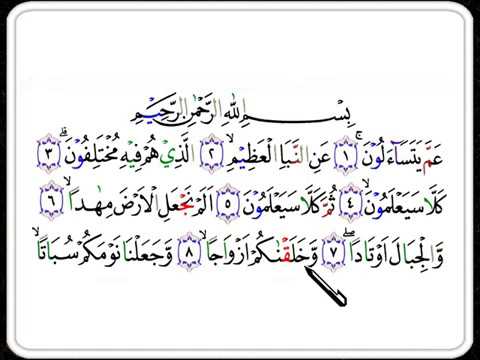 بِسْمِ اللّٰهِ الرَّحْمٰنِ الرَّحِيْمِ
عَمَّ يَتَسَاۤءَلُوْنَۚ ١ عَنِ النَّبَاِ الْعَظِيْمِۙ ٢ الَّذِيْ هُمْ فِيْهِ مُخْتَلِفُوْنَۗ ٣
كَلَّا سَيَعْلَمُوْنَۙ ٤ ثُمَّ كَلَّا سَيَعْلَمُوْنَ ٥ اَلَمْ نَجْعَلِ الْاَرْضَ مِهٰدًاۙ ٦
وَّالْجِبَالَ اَوْتَادًاۖ ٧ وَّخَلَقْنٰكُمْ اَزْوَاجًاۙ ٨ وَّجَعَلْنَا نَوْمَكُمْ سُبَاتًاۙ